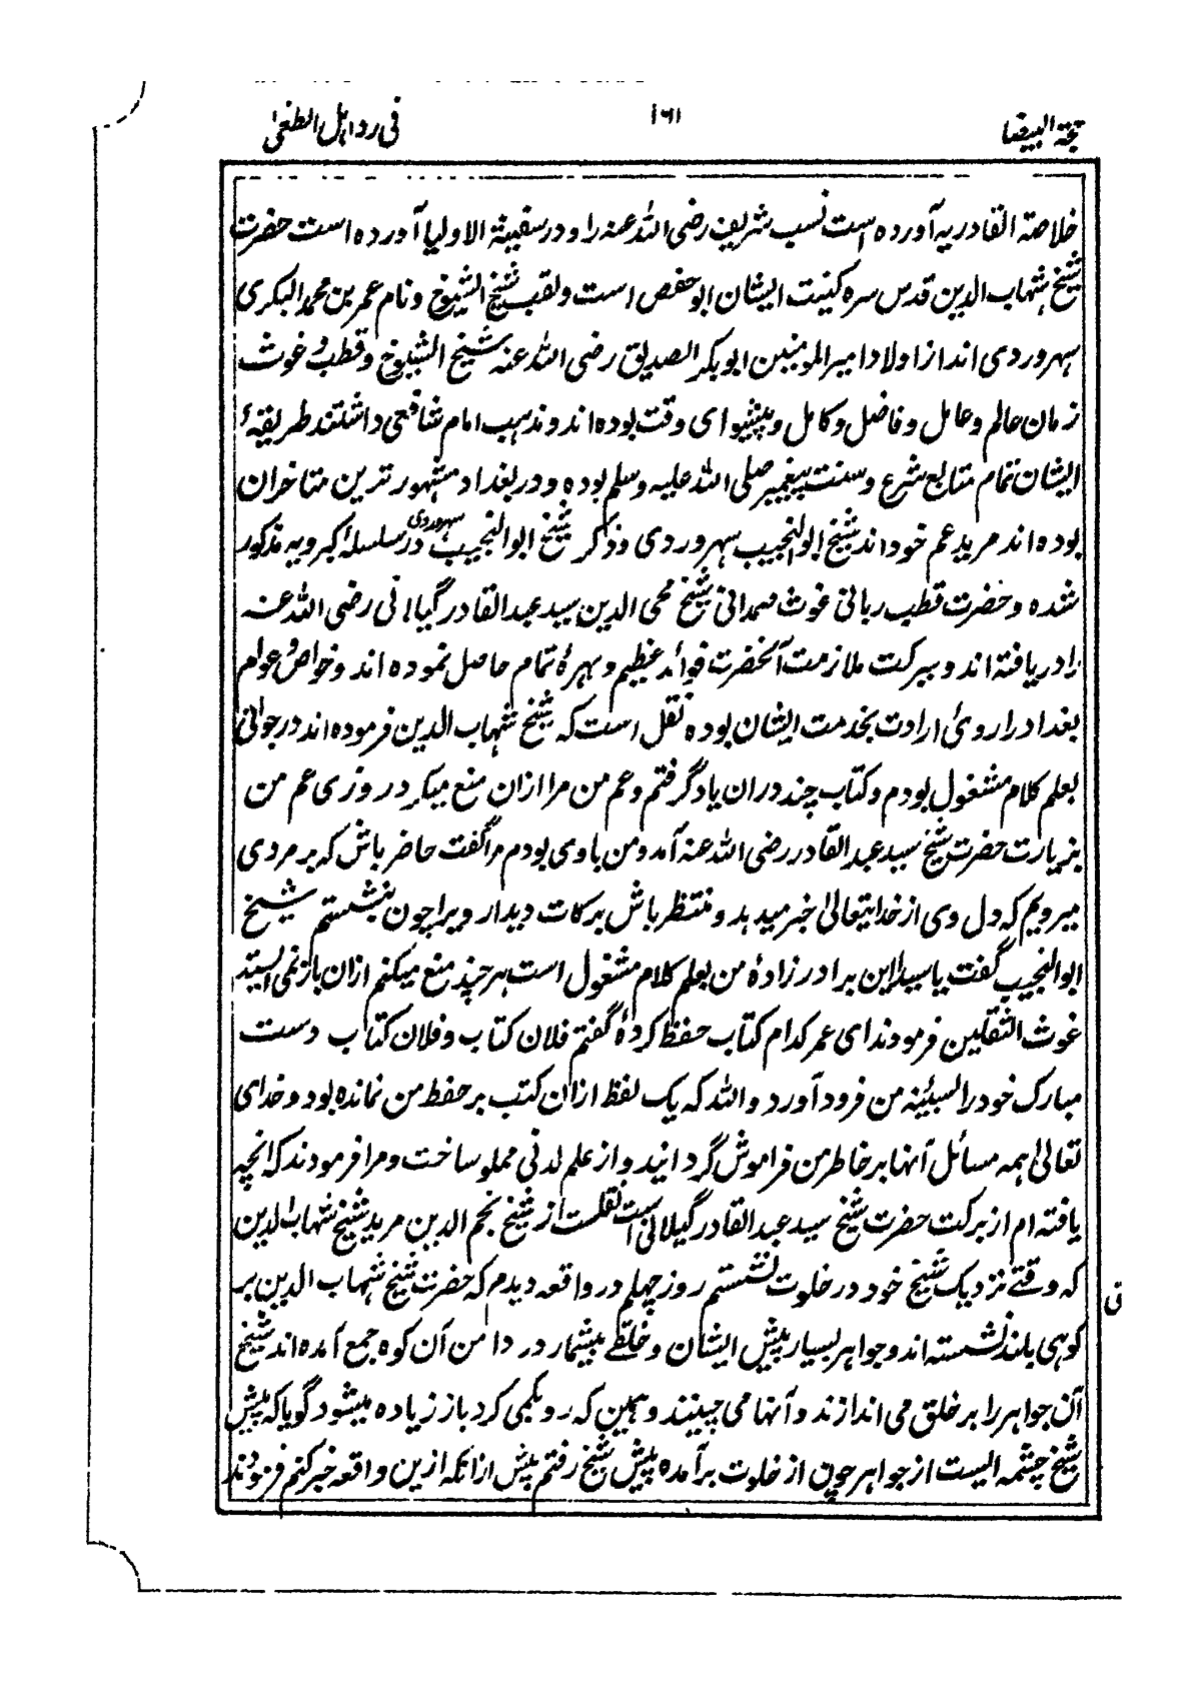 حجة البیضا ۱۶۱ فی رد اہل الطغیٰ
خلاصة القادریہ آورده است نسب شریف رضی اللہ عنہ را و در سفینة الاولیا آورده است حضرت
شیخ شہاب الدین قدس سره کنیت ایشان ابو حفص است و لقب شیخ الشیوخ و نام عمر بن محمد البکری
سہروردی اند از اولاد امیر المومنین ابو بکر الصدیق رضی اللہ عنہ شیخ الشیوخ و قطب و غوث
زمان عالم و عامل و فاضل و کامل و پیشوای وقت بوده اند و مذہب امام شافعی داشتند طریقۂ
ایشان تمام متابع شرع و سنت پیغمبر صلی اللہ علیہ وسلم بوده و در بغداد مشہور ترین متاخران
بوده اند مرید عم خود اند شیخ ابو النجیب سہروردی و ذکر شیخ ابو النجیب سہروردی در سلسلہ کبرویہ مذکور
شده و حضرت قطب ربانی غوث صمدانی شیخ محی الدین سید عبد القادر گیلانی رضی اللہ عنہ
را دریافتہ اند و ببرکت ملازمت آنحضرت فوائد عظیم و بہرۂ تمام حاصل نموده اند و خواص و عوام
بغداد را روئ ارادت بخدمت ایشان بوده نقل است کہ شیخ شہاب الدین فرموده اند در جوانی
بعلم کلام مشغول بودم و کتاب چند دران یاد گرفتم و عم من مرا ازان منع میکرد روزی عم من
بزیارت حضرت شیخ سید عبد القادر رضی اللہ عنہ آمد و من با وی بودم مرا گفت حاضر باش کہ بر مردی
میرویم کہ دل وی از خدا یتعالیٰ خبر میدہد و منتظر باش برکات دیدار ویرا چون بنشستم شیخ
ابو النجیب گفت یا سید این برادر زادۂ من بعلم کلام مشغول است ہر چند منع میکنم ازان باز نمی ایستد
غوث الثقلین فرمودند ای عمر کدام کتاب حفظ کردۂ گفتم فلان کتاب و فلان کتاب دست
مبارک خود را بسینہ من فرود آورد و اللہ کہ یک لفظ ازان کتب بر حفظ من نمانده بود و خدای
تعالیٰ ہمہ مسائل آنہا بر خاطر من فراموش گردانید و از علم لدنی مملو ساخت و مرا فرمودند کہ انچہ
یافتہ ام از برکت حضرت شیخ سید عبد القادر گیلانی است نقلست از شیخ نجم الدین مرید شیخ شہاب الدین
کہ وقتے نزدیک شیخ خود در خلوت نشستم روز چہلم در واقعہ دیدم کہ حضرت شیخ شہاب الدین بر
کوہی بلند نشستہ اند و جواہر بسیار پیش ایشان و خلقے بیشمار در دامن آن کوه جمع آمده اند شیخ
آن جواہر را بر خلق می اندازند و آنہا می چینند و ہمین کہ رو بکمی کرد باز زیاده میشود گویا کہ پیش
شیخ چشمہ ایست از جواہر چون از خلوت برآمده پیش شیخ رفتم پیش ازانکہ ازین واقعہ خبر کنم فرمودند